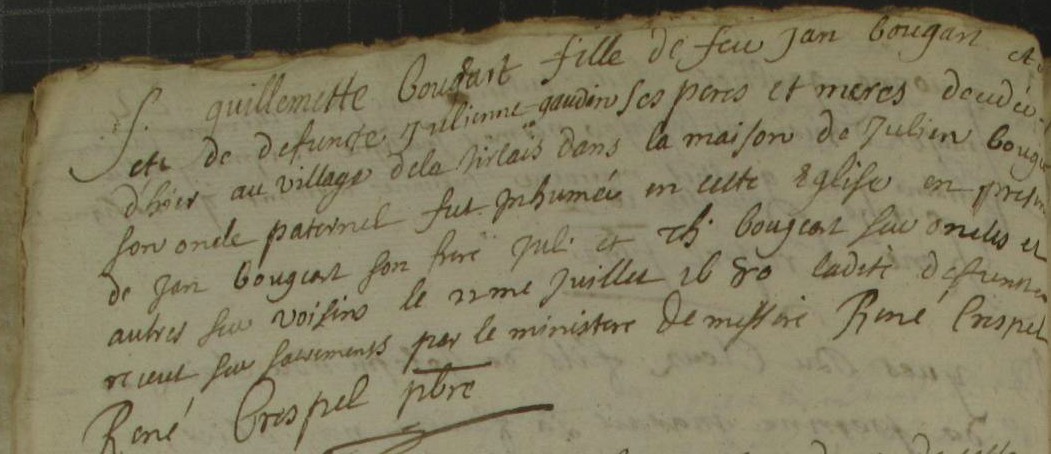 S. guillemette bougart fille de feu jan bougart et
et de defuncte julienne gaudin ses peres et meres decedée
d'hier au village dela dans la maison de julien
son oncle paternel fut inhumée en cette Eglise en
de jan bougeart son frere jul. et th. bougeart ses oncles et
autres ses voisins le 22me juillet 1680 ladite defuncte
receut ses sacrements par le ministere de messire René Crespel
René Crespel pbre